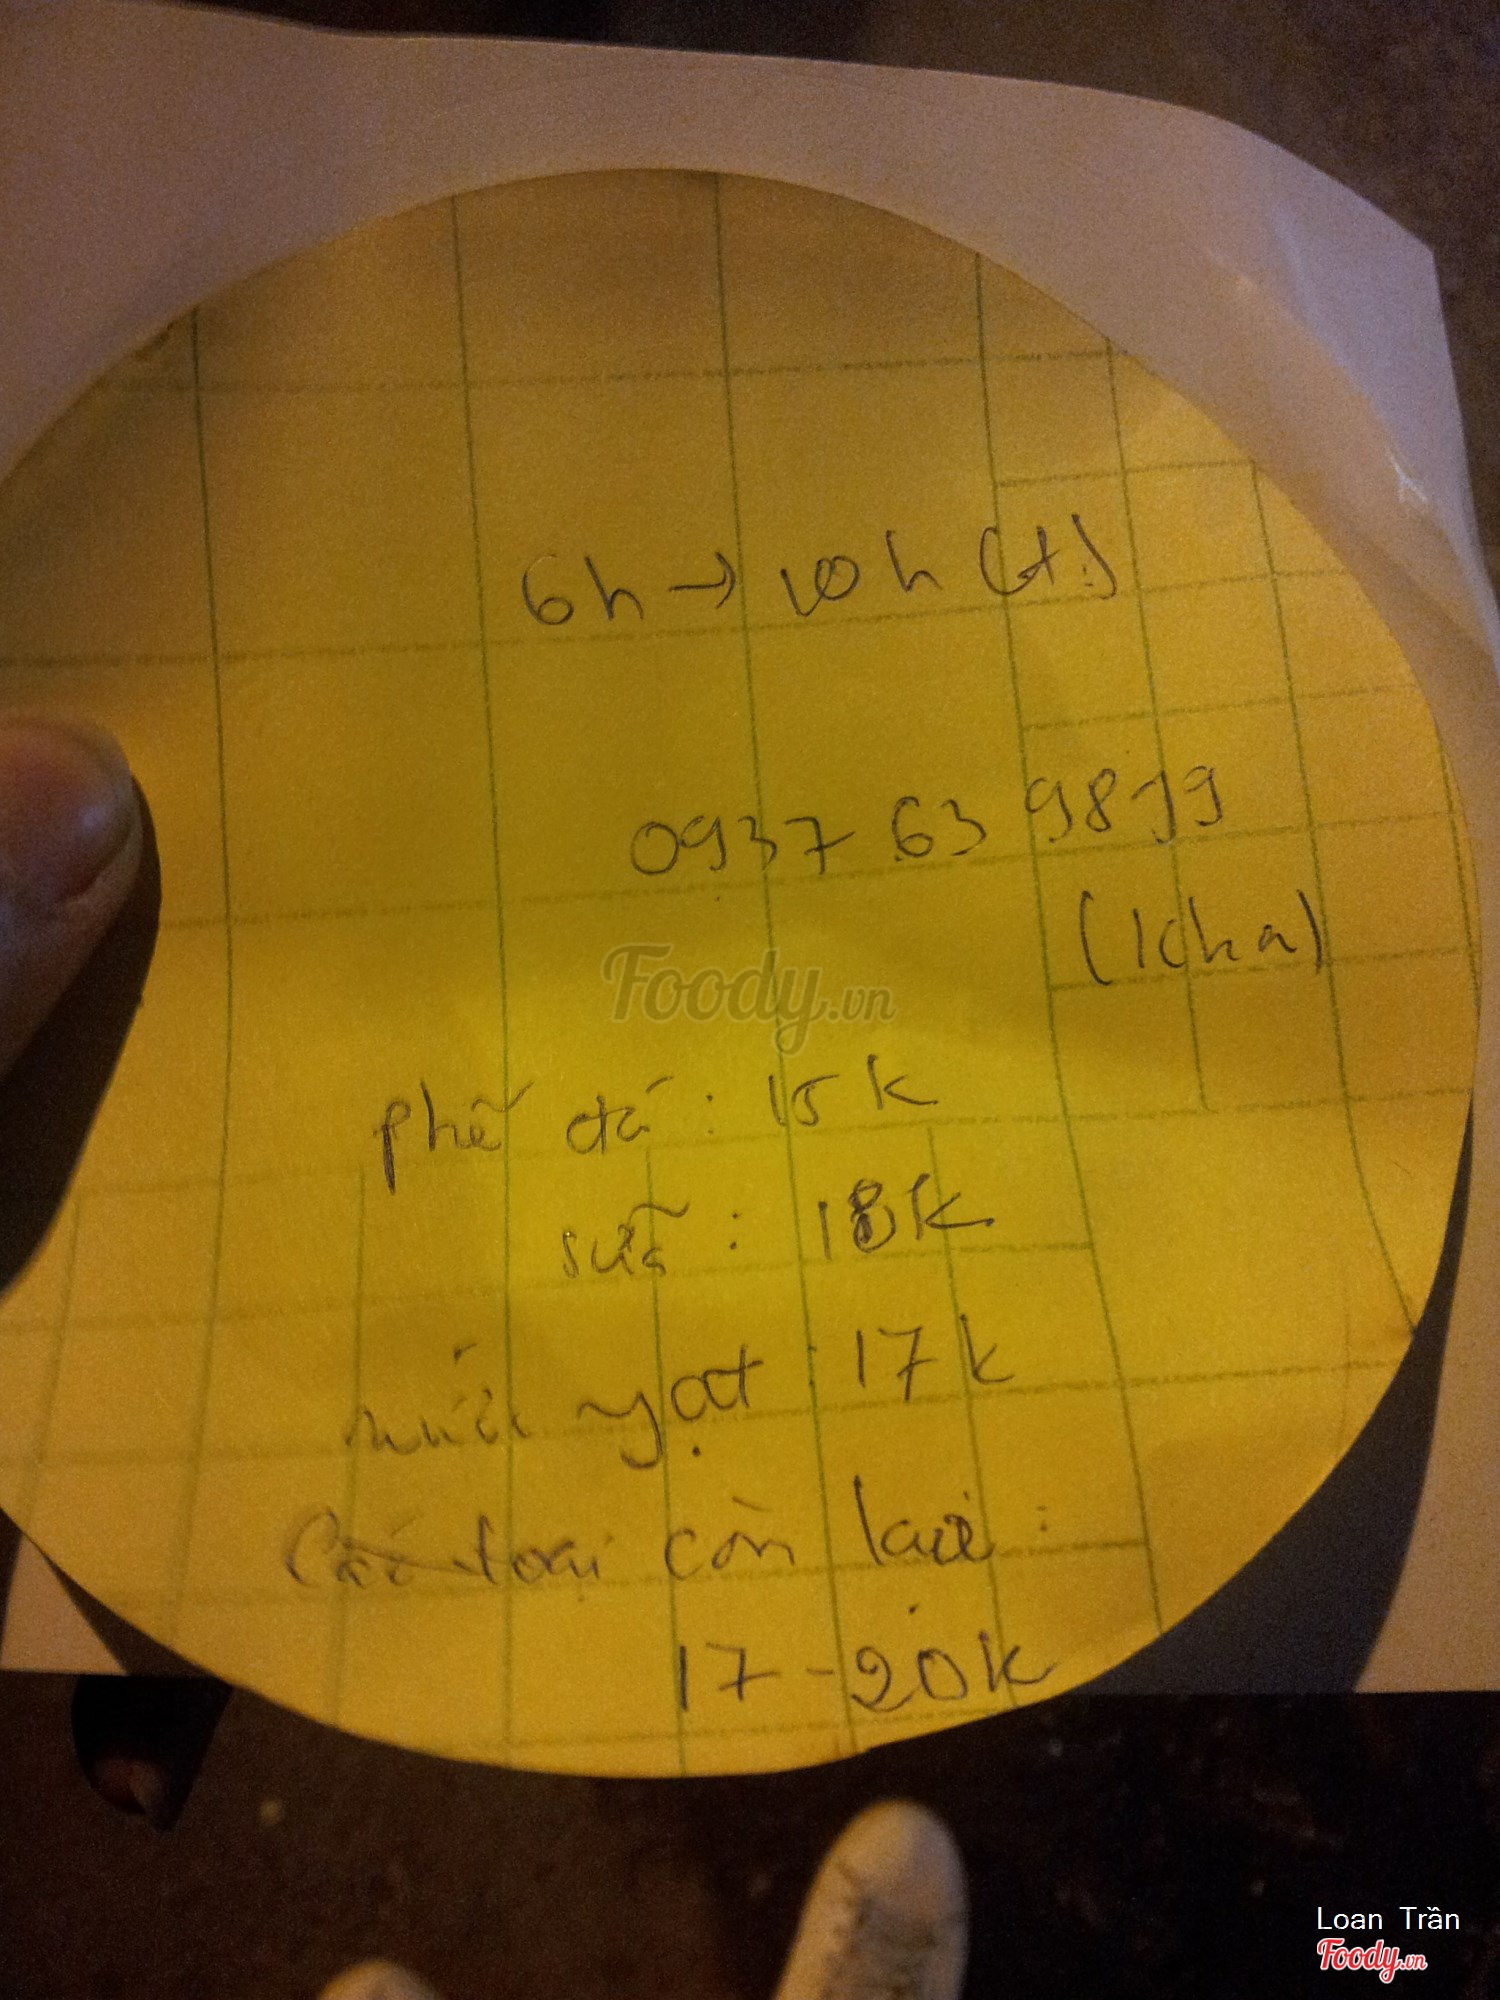 6h → 10h (t)
0937 63 9899
(Kha)
Foody.vn
phê đá : 15k
sữa : 18k
nước ngọt : 17k
Các loại còn lại :
17 - 20k
Loan Trần
Foody.vn